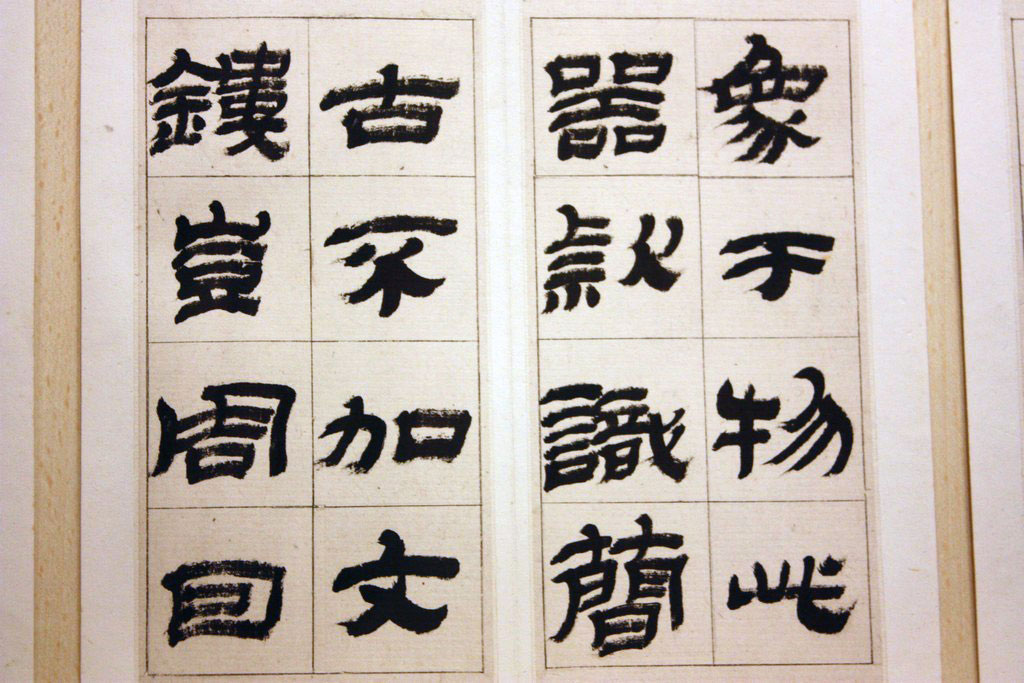 象于物此
器款識簡
古不加文
鏤豈周回